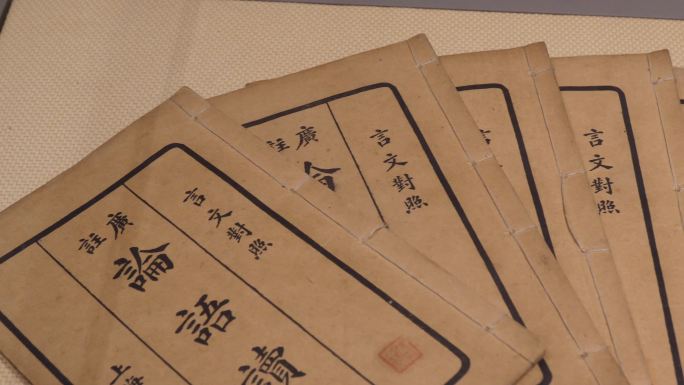 言文對照
廣註
論語讀
上海
言文對照
廣註
言
言文對照